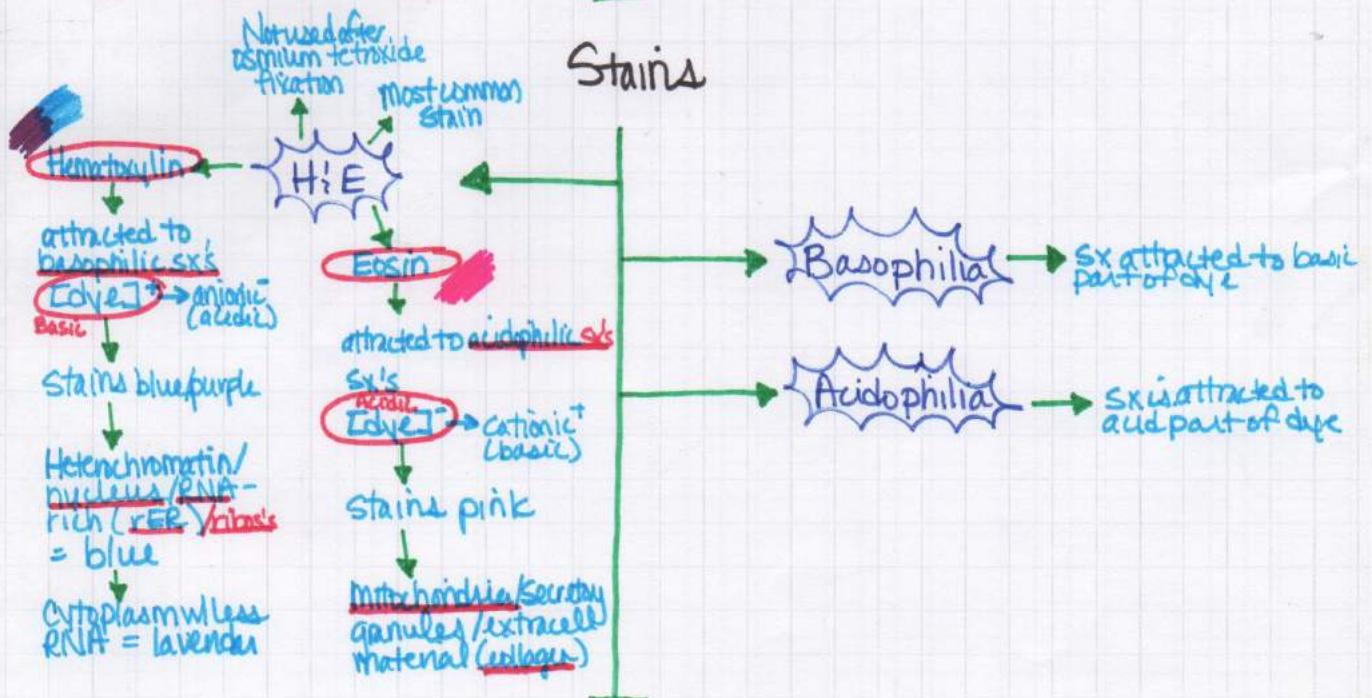 Stains
Not used after
osmium tetroxide
fixation
Most common
stain
H&E
Hematoxylin
attracted to
basophilic sx's
[dye]⁺ → anionic⁻
(acidic)
Basic
Stains blue/purple
Heterochromatin/
nucleus/RNA-
rich (rER)/ribos's
= blue
Cytoplasm w/less
RNA = lavender
Eosin
attracted to acidophilic sx's
sx's
Acidic
[dye]⁻ → cationic⁺
(basic)
Stains pink
Mitochondria/secretory
granules/extracell
material (collagen)
Basophilia → sx attracted to basic
part of dye
Acidophilia → sx is attracted to
acid part of dye